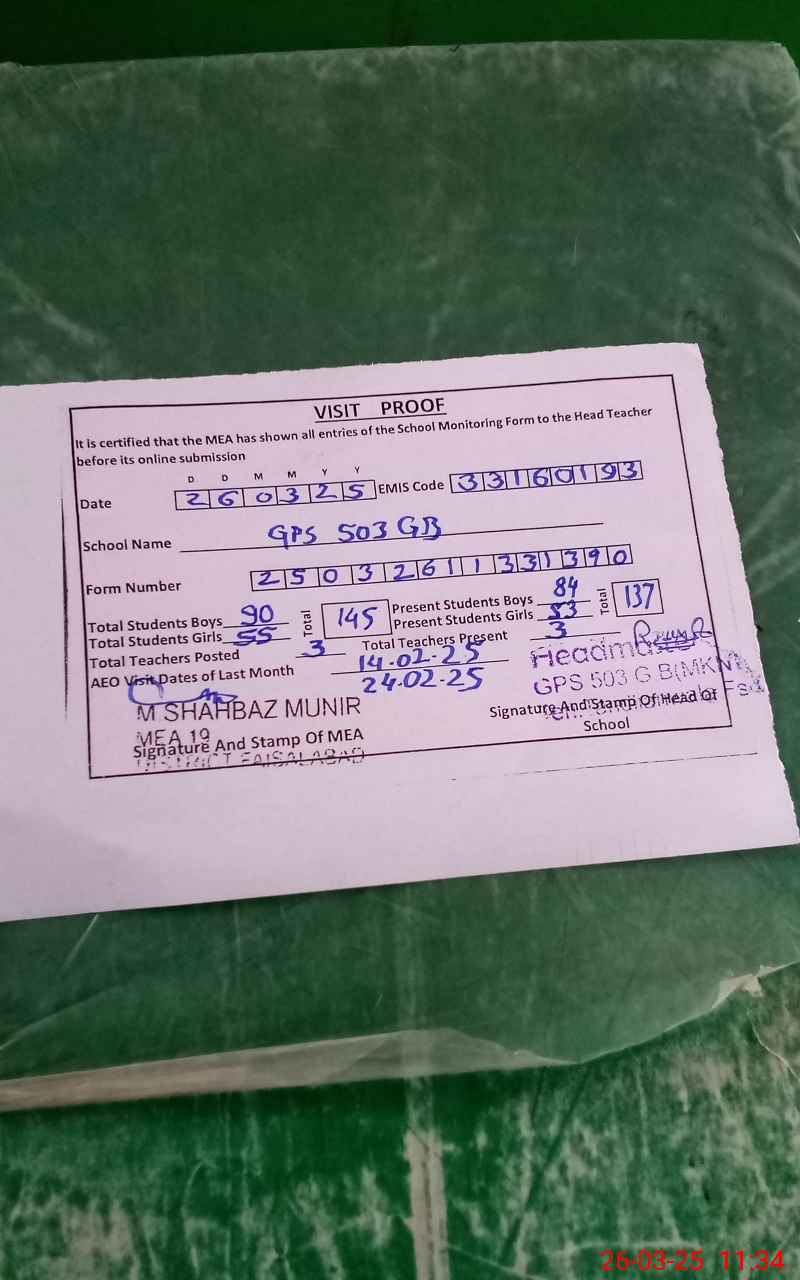 VISIT PROOF
It is certified that the MEA has shown all entries of the School Monitoring Form to the Head Teacher
before its online submission
D D M M Y Y
Date 260325 EMIS Code 33160193
School Name GPS 503 GB
Form Number 25032611331390
Total Students Boys 90 Total 145 Present Students Boys 84 Total 137
Total Students Girls 55 Present Students Girls 53
Total Teachers Posted 3 Total Teachers Present 3
AEO Visit Dates of Last Month 14-02-25
24-02-25
M SHAHBAZ MUNIR
MEA 19
Signature And Stamp Of MEA
DISTRICT FAISALABAD
Headmaster
GPS 503 G.B(MKN)
Signature And Stamp Of Head Of
School
26-03-25 11:34